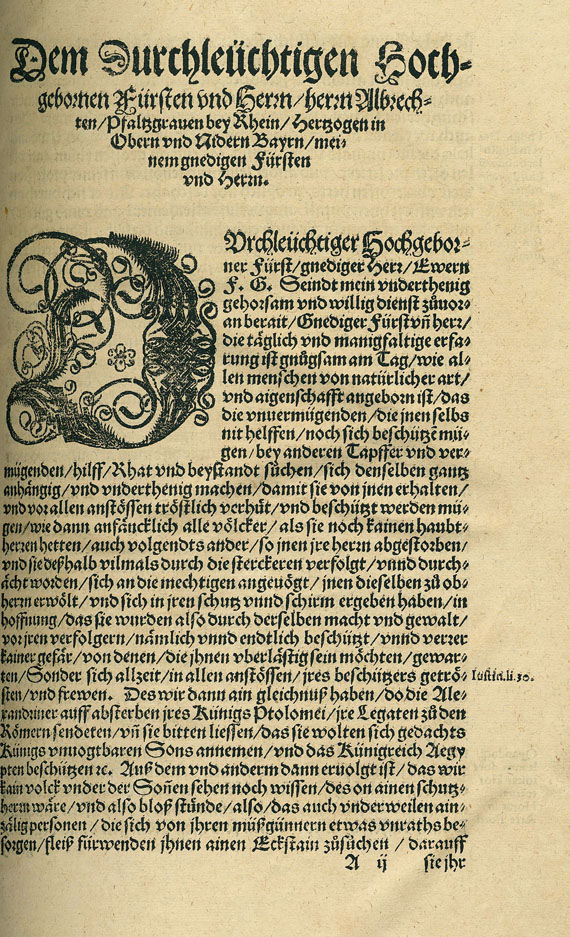 Dem Durchleüchtigen Hoch⸗
gebornen Fürsten vnd Herrn/herrn Albrech⸗
ten/Pfaltzgrauen bey Rhein/Hertzogen in
Obern vnd Nidern Bayrn/mei⸗
nem gnedigen Fürsten
vnd Herrn.
DVrchleüchtiger Hochgebor⸗
ner Fürst/gnediger Herr/Ewern
F. G. Seindt mein vnderthenig
gehorsam vnd willig dienst zůuor⸗
an berait/Gnediger Fürst vñ herr/
die täglich vnd manigfaltige erfa⸗
rung ist gnůgsam am Tag/wie al⸗
len menschen von natürlicher art/
vnd aigenschafft angeborn ist/das
die vnuermügenden/die jnen selbs
nit helffen/noch sich beschützẽ mü⸗
gen/bey anderen Tapffer vnd ver⸗
mügenden/hilff/Rhat vnd beystandt sůchen/sich denselben gantz
anhängig/vnd vnderthenig machen/damit sie von jnen erhalten/
vnd vor allen anstössen tröstlich verhüt/vnd beschützt werden mü⸗
gen/wie dann anfäncklich alle völcker/als sie noch kainen haubt⸗
herren hetten/auch volgendts ander/so jnen jre herrn abgestorben/
vnd sie deßhalb vilmals durch die sterckeren verfolgt/vnnd durch⸗
ächt worden/sich an die mechtigen angeuögt/jnen dieselben zů ob⸗
herrn erwölt/vnd sich in jren schutz vnnd schirm ergeben haben/in
hoffnung/das sie wurden also durch derselben macht vnd gewalt/
vor jren verfolgern/nämlich vnnd endtlich beschützt/vnnd verrer
kainer gefär/von denen/die jhnen vberlästig sein möchten/gewar⸗
ten/Sonder sich allzeit/in allen anstössen/jres beschützers getrö⸗
sten/vnd frewen. Des wir dann ain gleichnuß haben/do die Ale⸗
xandriner auff absterben jres Künigs Ptolomei/jre Legaten zů den
Römern sendeten/vñ sie bitten liessen/das sie wolten sich gedachts
Künigs vnuogtbaren Sons annemen/vnd das Künigreich Aegy
pten beschützen ꝛc. Auß dem vnd anderm dann eruolgt ist/das wir
kain volck vnder der Soñen sehen noch wissen/des on ainen schutz⸗
herrn wäre/vnd also bloß stůnde/also/das auch vnderweilen ain⸗
zälig personen/die sich von jhren mißgünnern etwas vnraths be⸗
sorgen/fleiß fürwenden jhnen ainen Eckstain zůsůchen/darauff
A ij sie jhr
Iustin. li. 30.